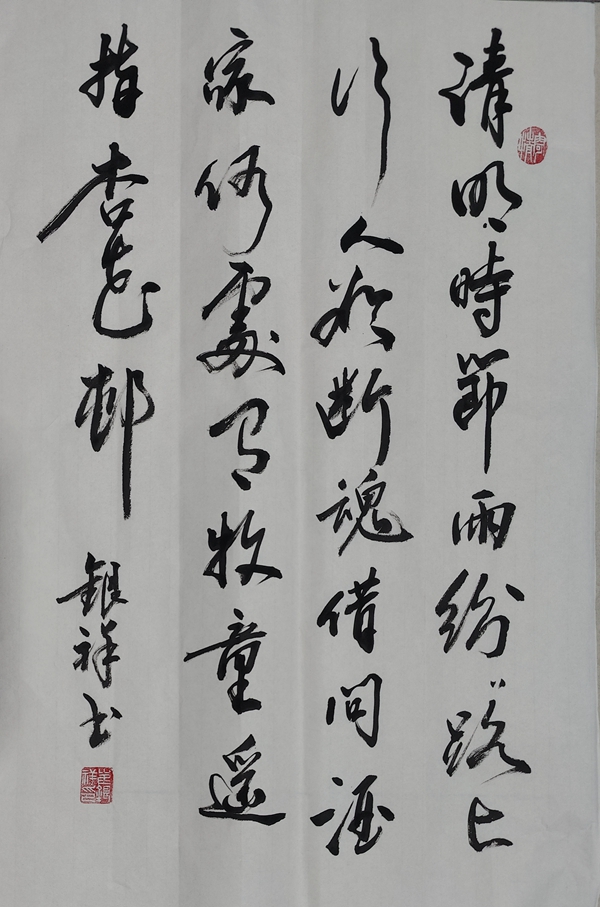 清明時節雨紛〻路上
行人欲断魂借问酒
家何處有牧童遥
指杏花邨
銀祥书